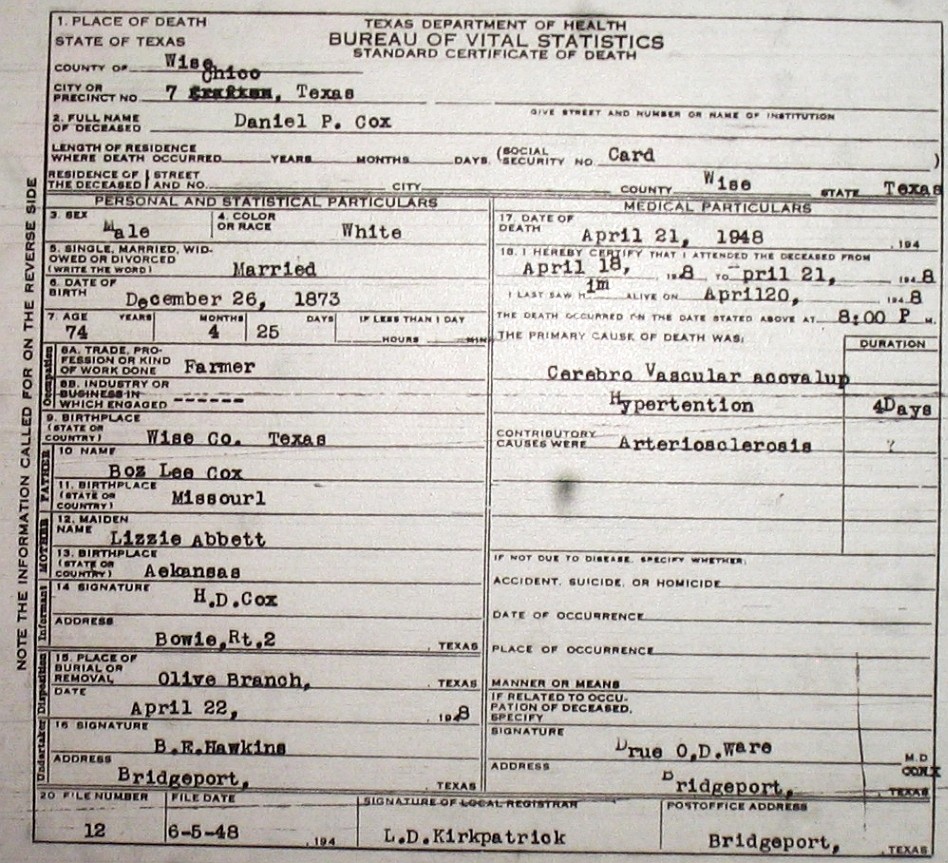 TEXAS DEPARTMENT OF HEALTH
BUREAU OF VITAL STATISTICS
STANDARD CERTIFICATE OF DEATH
1. PLACE OF DEATH
STATE OF TEXAS
COUNTY OF Wise
Chico
CITY OR PRECINCT NO. 7 Grafton, Texas
GIVE STREET AND NUMBER OR NAME OF INSTITUTION
2. FULL NAME OF DECEASED Daniel P. Cox
LENGTH OF RESIDENCE WHERE DEATH OCCURRED YEARS MONTHS DAYS (SOCIAL SECURITY NO. Card )
RESIDENCE OF THE DECEASED STREET AND NO. CITY COUNTY Wise STATE Texas
PERSONAL AND STATISTICAL PARTICULARS
3. SEX Male 4. COLOR OR RACE White
5. SINGLE, MARRIED, WIDOWED OR DIVORCED (WRITE THE WORD) Married
6. DATE OF BIRTH December 26, 1873
7. AGE YEARS MONTHS DAYS IF LESS THAN 1 DAY
74 4 25 HOURS MIN
Occupation
8A. TRADE, PROFESSION OR KIND OF WORK DONE Farmer
8B. INDUSTRY OR BUSINESS IN WHICH ENGAGED ------
9. BIRTHPLACE (STATE OR COUNTRY) Wise Co. Texas
FATHER
10 NAME Boz Lee Cox
11. BIRTHPLACE (STATE OR COUNTRY) Missourl
MOTHER
12. MAIDEN NAME Lizzie Abbett
13. BIRTHPLACE (STATE OR COUNTRY) Aekansas
Informant
14 SIGNATURE H.D.Cox
ADDRESS Bowie,Rt.2 , TEXAS
Disposition
15. PLACE OF BURIAL OR REMOVAL Olive Branch, , TEXAS
DATE April 22, , 1948
Undertaker
16 SIGNATURE B.E.Hawkins
ADDRESS Bridgeport, , TEXAS
MEDICAL PARTICULARS
17. DATE OF DEATH April 21, 1948 , 194
18. I HEREBY CERTIFY THAT I ATTENDED THE DECEASED FROM
April 18, 8 TO pril 21, 194 8
I LAST SAW H im ALIVE ON April20, 194 8
THE DEATH OCCURRED ON THE DATE STATED ABOVE AT 8:00 P M.
THE PRIMARY CAUSE OF DEATH WAS: DURATION
Cerebro Vascular acovalup
Hypertention 4Days
CONTRIBUTORY CAUSES WERE Arteriosclerosis ?
IF NOT DUE TO DISEASE, SPECIFY WHETHER:
ACCIDENT, SUICIDE, OR HOMICIDE
DATE OF OCCURRENCE
PLACE OF OCCURRENCE
MANNER OR MEANS
IF RELATED TO OCCUPATION OF DECEASED, SPECIFY
SIGNATURE Drue O.D.Ware M.D
ADDRESS Bridgeport, , TEXAS
20 FILE NUMBER FILE DATE SIGNATURE OF LOCAL REGISTRAR POSTOFFICE ADDRESS
12 6-5-48 , 194 L.D.Kirkpatrick Bridgeport, , TEXAS
NOTE THE INFORMATION CALLED FOR ON THE REVERSE SIDE